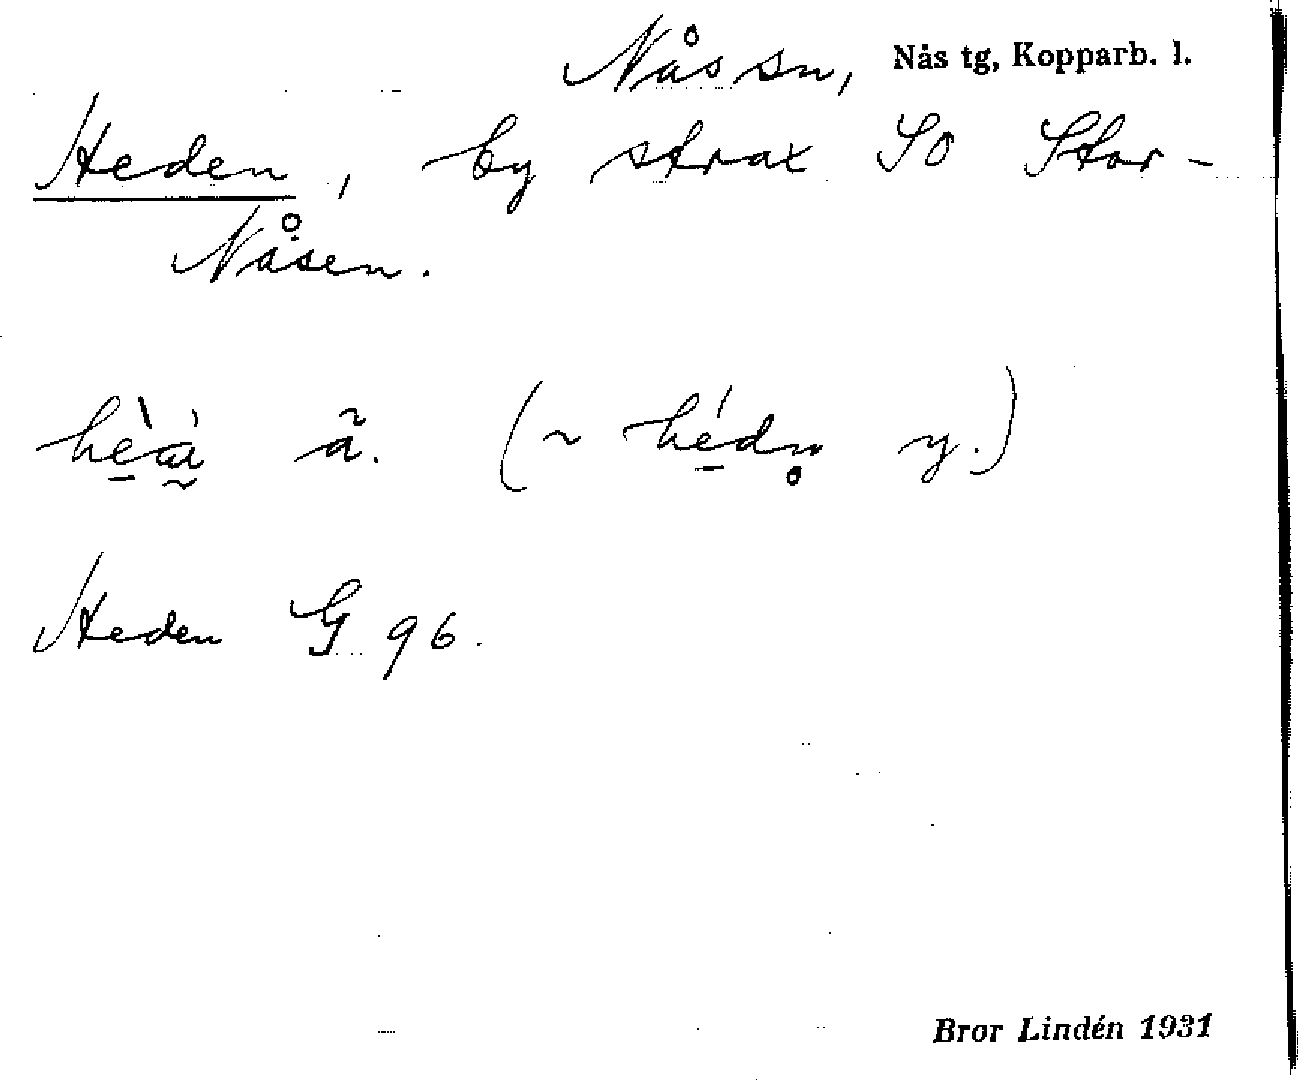 Nås sn, Nås tg, Kopparb. l.
Heden, by strax SO Stor-
Nåsen.
hè̱à̰ ã. (~ hé̱dn̥ y.)
Heden G 96.
Bror Lindén 1931